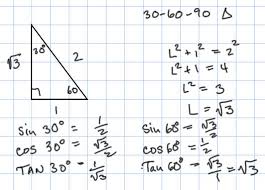 30-60-90 Δ
30°
√3
2
60°
1
L² + 1² = 2²
L² + 1 = 4
L² = 3
L = √3
sin 30° = 1/2
cos 30° = √3/2
TAN 30° = 1/√3
sin 60° = √3/2
cos 60° = 1/2
Tan 60° = √3/1 = √3